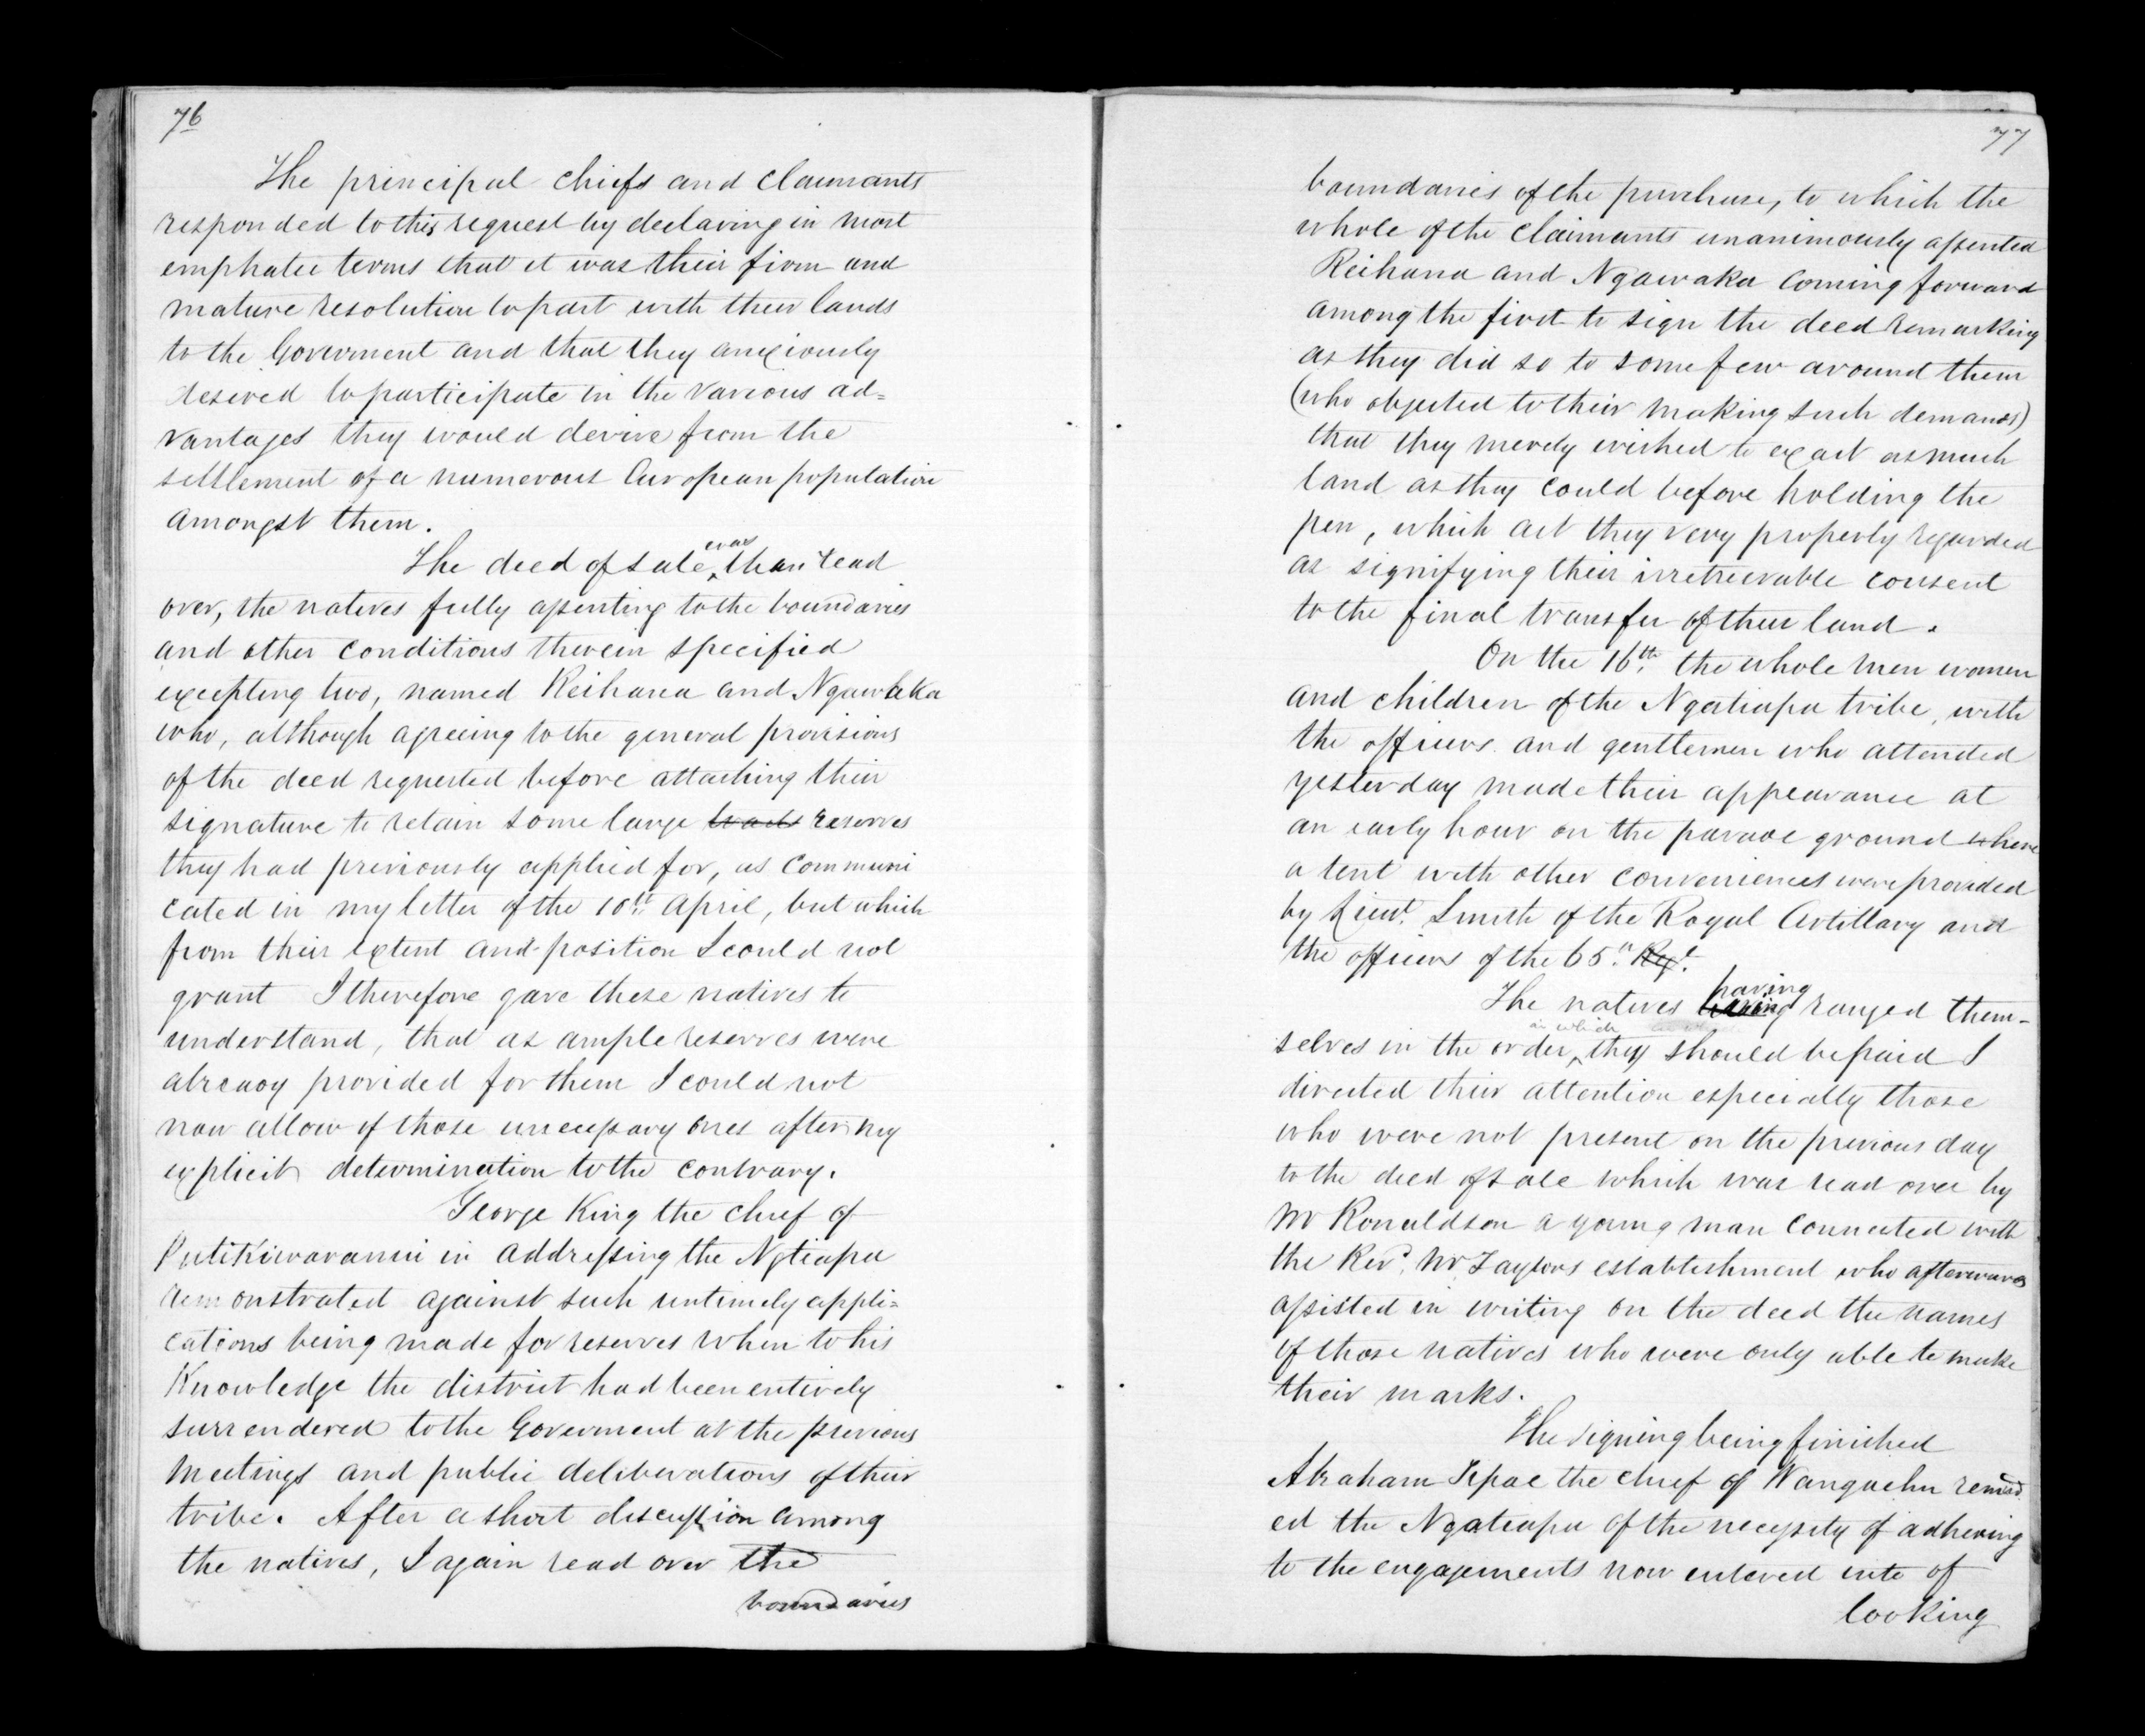 76
The principal chiefs and claimants
responded to this request by declaring in most
emphatic terms that it was their firm and
mature resolution to part with their lands
to the Goverment and that they anxiously
desired to participate in the various ad=
vantages they would derive from the
settlement of a numerous European population
amongst them.
was
The deed of sale ^ then read
over, the natives fully assenting to the boundaries
and other conditions therein specified
excepting two, named Reihana and Ngawaka
who, although agreeing to the general provisions
of the deed requested before attaching their
signature to retain some large tracts reserves
they had previously applied for, as communi
cated in my letter of the 10th April, but which
from their extent and position I could not
grant I therefore gave these natives to
understand, that as ample reserves were
already provided for them I could not
now allow of those unnecessary ones after my
explicit determination to the contrary.
George King the chief of
Putikiwaranui in addressing the Ngtiapa
remonstrated against such untimely appli=
cations being made for reserves when to his
Knowledge the district had been entirely
surrendered to the Goverment at the previous
meetings and public deliberations of their
tribe. After a short discussion among
the natives, I again read over the
boundaries
77
boundaries of the purchase, to which the
whole of the claimants unanimously assented
Reihana and Ngawaka coming forward
among the first to sign the deed remarking
as they did so to some few around them
(who objected to their making such demands)
that they merely wished to exact as much
land as they could before holding the
pen, which act they very properly regarded
as signifying their irretrievable consent
to the final transfer of their land.
On the 16th the whole men women
and children of the Ngatiapa tribe, with
the officers and gentlemen who attended
yesterday made their appearance at
an early hour on the parade ground where
a tent with other conveniences were provided
by Lieut. Smith of the Royal Artillary and
the officers of the 65th Regt.
having
The natives having ranged them-
in which
selves in the order ^ they should be paid I
directed their attention especially those
who were not present on the previous day
to the deed of sale which was read over by
Mr Ronaldson a young man connected with
the Revd. Mr Taylors establishment who afterwards
assisted in writing on the deed the names
of those natives who were only able to make
their marks.
The signing being finished
Abraham Tipae the chief of Wanguehu remind
ed the Ngatiapa of the necessity of adhering
to the engagements now entered into of
looking